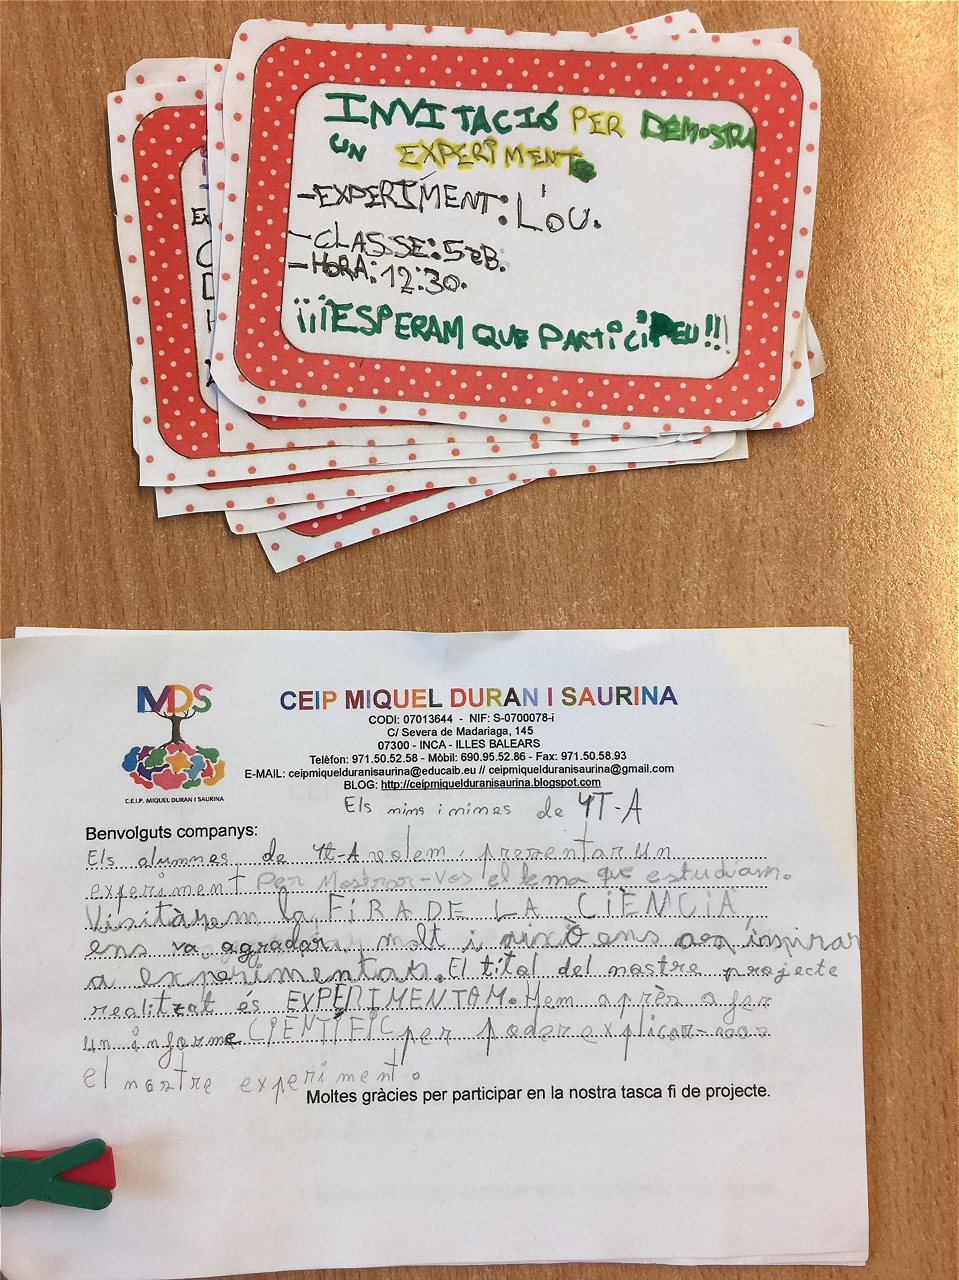 INVITACIÓ PER DEMOSTRA
UN EXPERIMENT
-EXPERIMENT: L'OU.
-CLASSE: 5èB.
-HORA: 12:30.
¡¡¡ESPERAM QUE PARTICIPEU!!!
MDS
C.E.I.P. MIQUEL DURAN I SAURINA
CEIP MIQUEL DURAN I SAURINA
CODI: 07013644 - NIF: S-0700078-i
C/ Severa de Madariaga, 145
07300 - INCA - ILLES BALEARS
Telèfon: 971.50.52.58 - Mòbil: 690.95.52.86 - Fax: 971.50.58.93
E-MAIL: ceipmiquelduranisaurina@educaib.eu // ceipmiquelduranisaurina@gmail.com
BLOG: http://ceipmiquelduranisaurina.blogspot.com
Els nins i nines de 4T-A
Benvolguts companys:
Els alumnes de 4t-A volem presentar un
experiment per mostrar-vos el tema que estudiam.
Visitàrem la FIRA DE LA CIÈNCIA,
ens va agradar molt i això ens van inspirar
a experimentar. El títol del nostre projecte
realitzat és EXPERIMENTAM. Hem après a fer
un informe CIENTÍFIC per poder explicar-vos
el nostre experiment.
Moltes gràcies per participar en la nostra tasca fi de projecte.